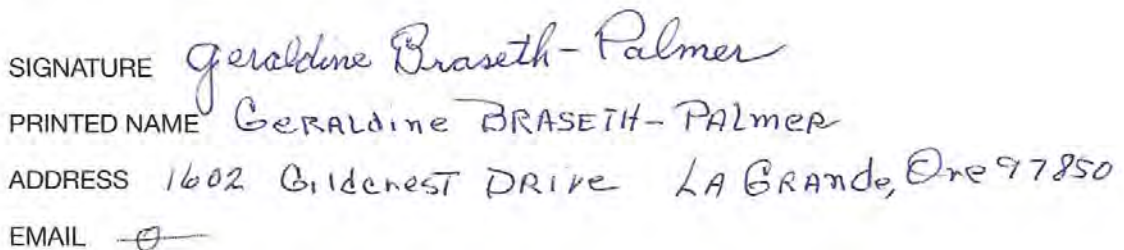 SIGNATURE Geraldine Braseth-Palmer
PRINTED NAME GERALdine BRASETH-PALmeR
ADDRESS 1602 GildcresT DRIve LA GRAnde, Ore 97850
EMAIL